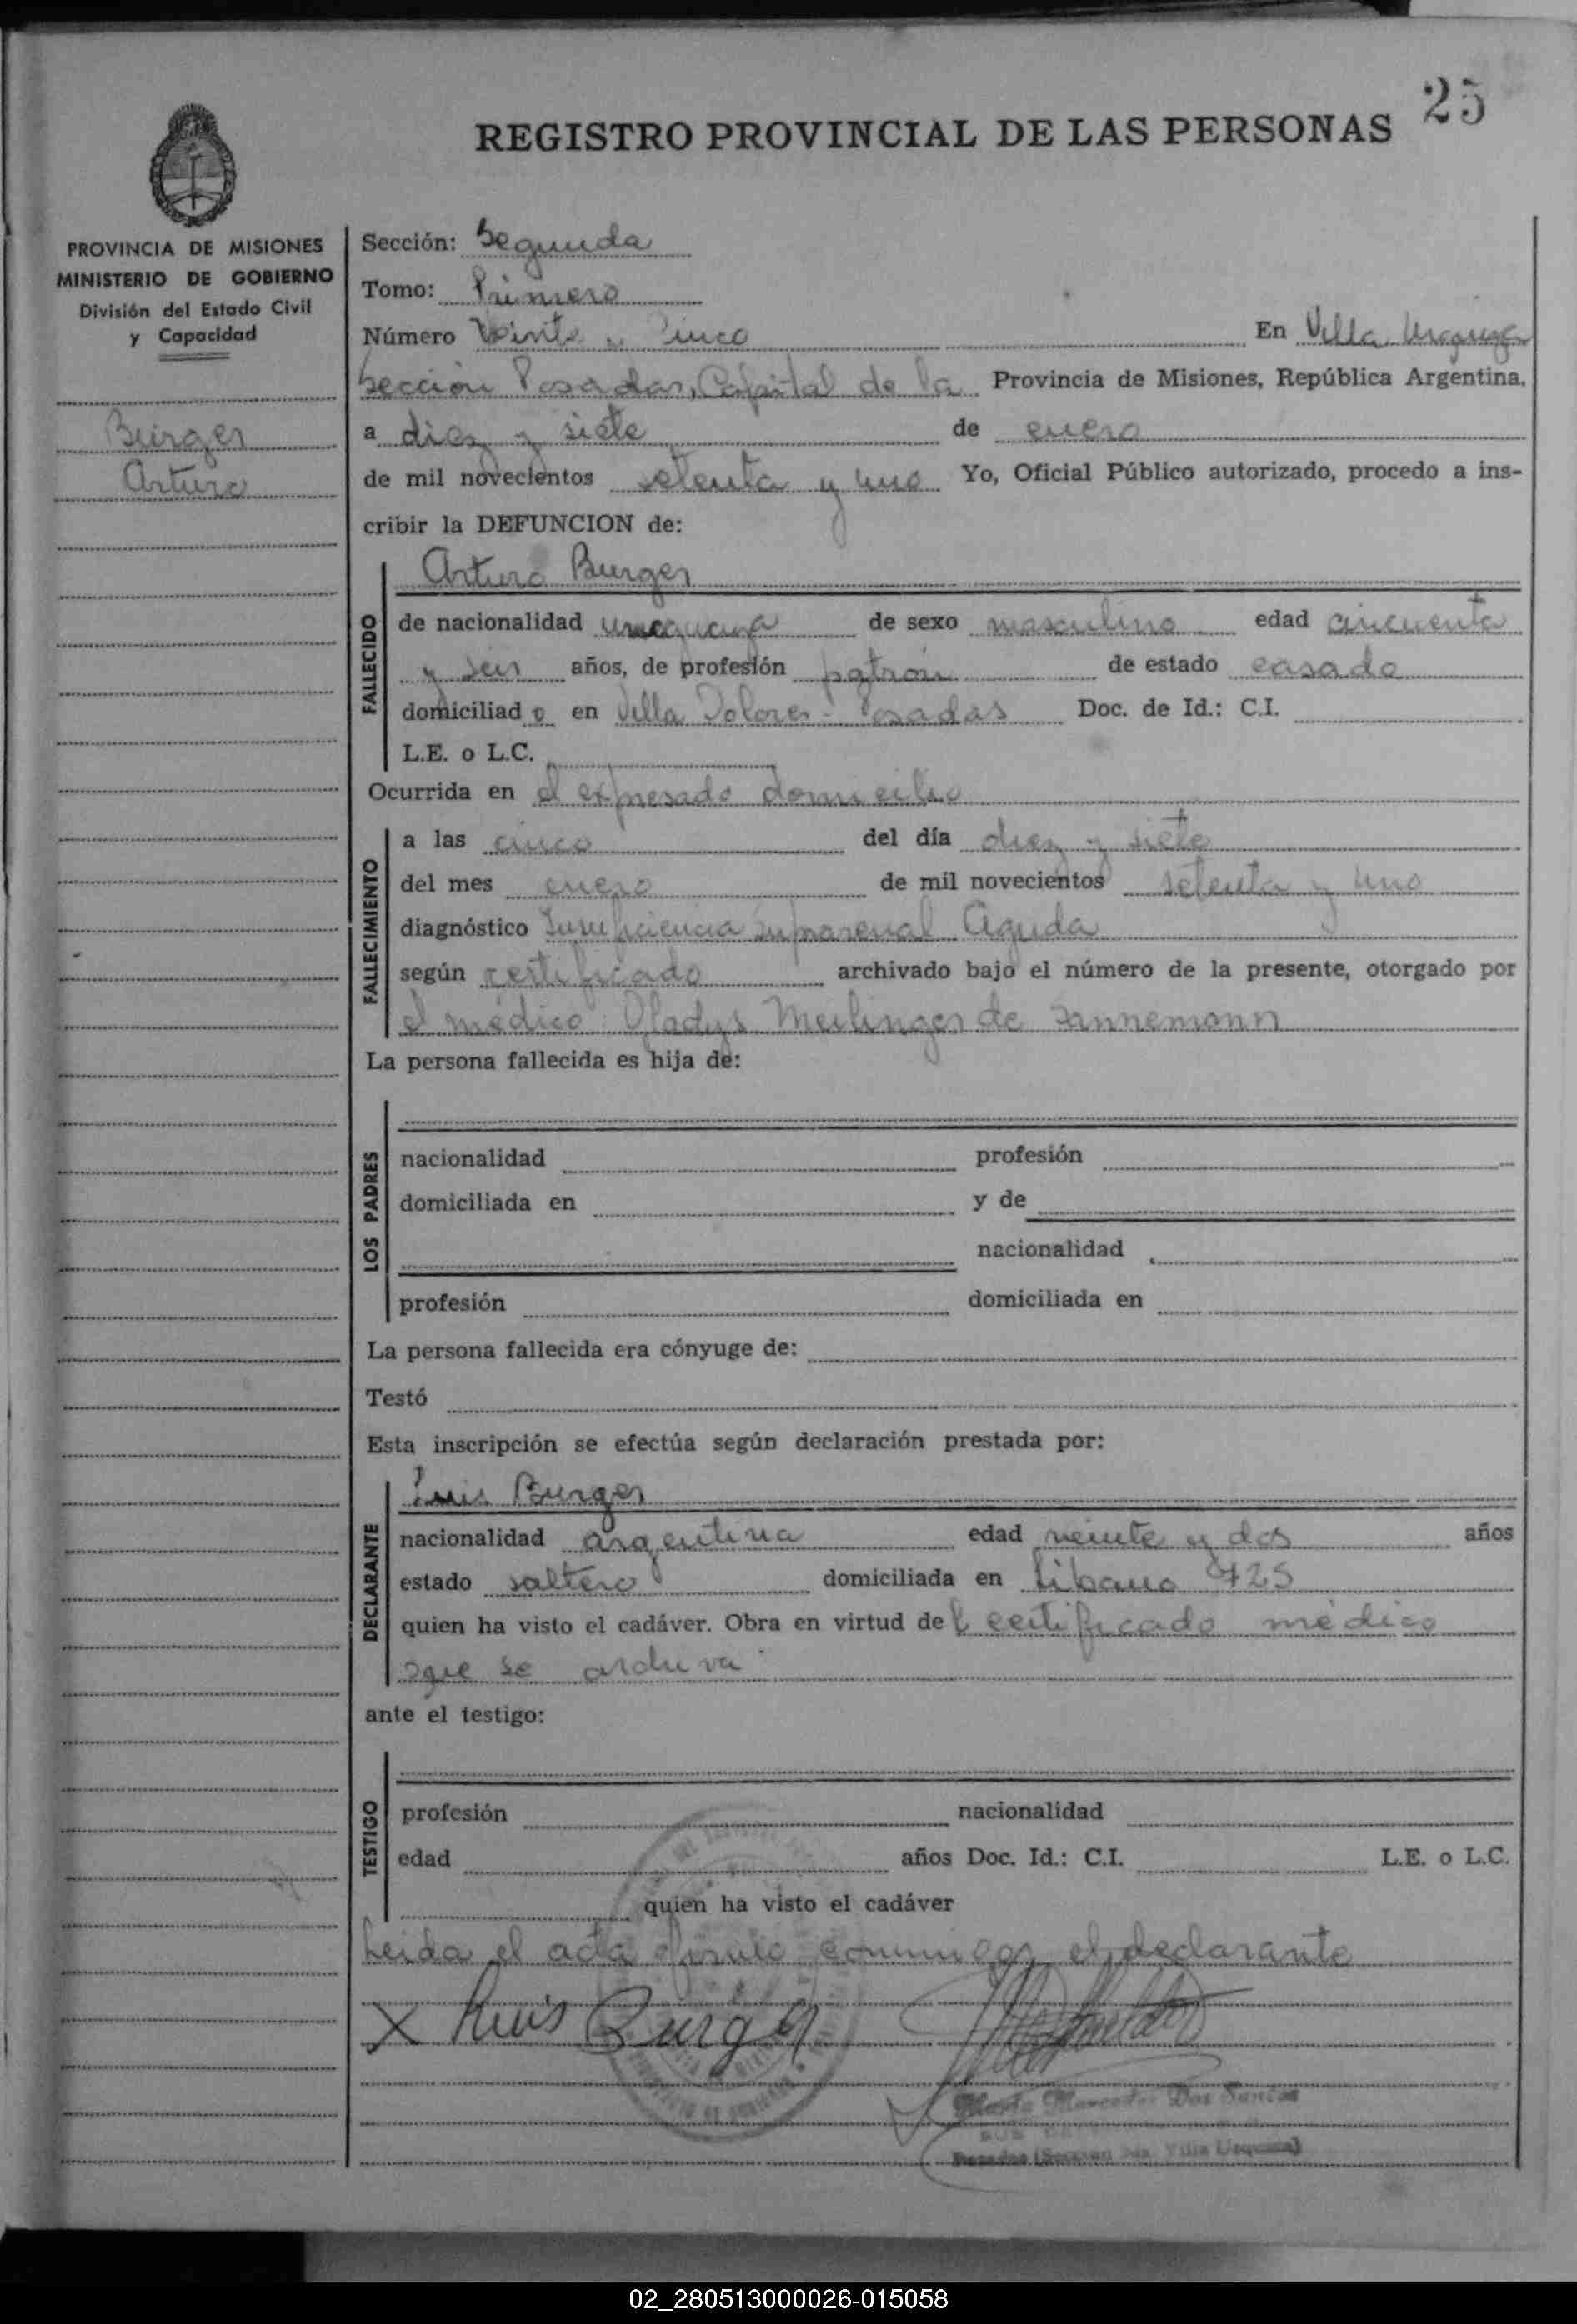 25
REGISTRO PROVINCIAL DE LAS PERSONAS
PROVINCIA DE MISIONES
MINISTERIO DE GOBIERNO
División del Estado Civil
y Capacidad
Burger
Arturo
Sección: Segunda
Tomo: Primero
Número Veinte y Cinco En Villa Urquiza
Sección Posadas, Capital de la Provincia de Misiones, República Argentina,
a diez y siete de enero
de mil novecientos setenta y uno Yo, Oficial Público autorizado, procedo a ins-
cribir la DEFUNCION de:
FALLECIDO
Arturo Burger
de nacionalidad de sexo masculino edad cincuenta
y seis años, de profesión patrón de estado casado
domiciliad o en Villa Dolores - Posadas Doc. de Id.: C.I.
L.E. o L.C.
Ocurrida en el expresado domicilio
FALLECIMIENTO
a las cinco del día diez y siete
del mes enero de mil novecientos setenta y uno
diagnóstico Insuficiencia Suprarenal Aguda
según certificado archivado bajo el número de la presente, otorgado por
el médico: Gladys Meilinger de Zannemann
La persona fallecida es hija de:
LOS PADRES
nacionalidad profesión
domiciliada en y de
nacionalidad
profesión domiciliada en
La persona fallecida era cónyuge de:
Testó
Esta inscripción se efectúa según declaración prestada por:
DECLARANTE
Luis Burger
nacionalidad argentina edad veinte y dos años
estado soltero domiciliada en Libano 425
quien ha visto el cadáver. Obra en virtud de l certificado médico
que se archiva
ante el testigo:
TESTIGO
profesión nacionalidad
edad años Doc. Id.: C.I. L.E. o L.C.
quien ha visto el cadáver
Leida el acta conmigo el declarante
X Luis Burger
Dos Santos
Posadas Villa Urquiza)
02_280513000026-015058